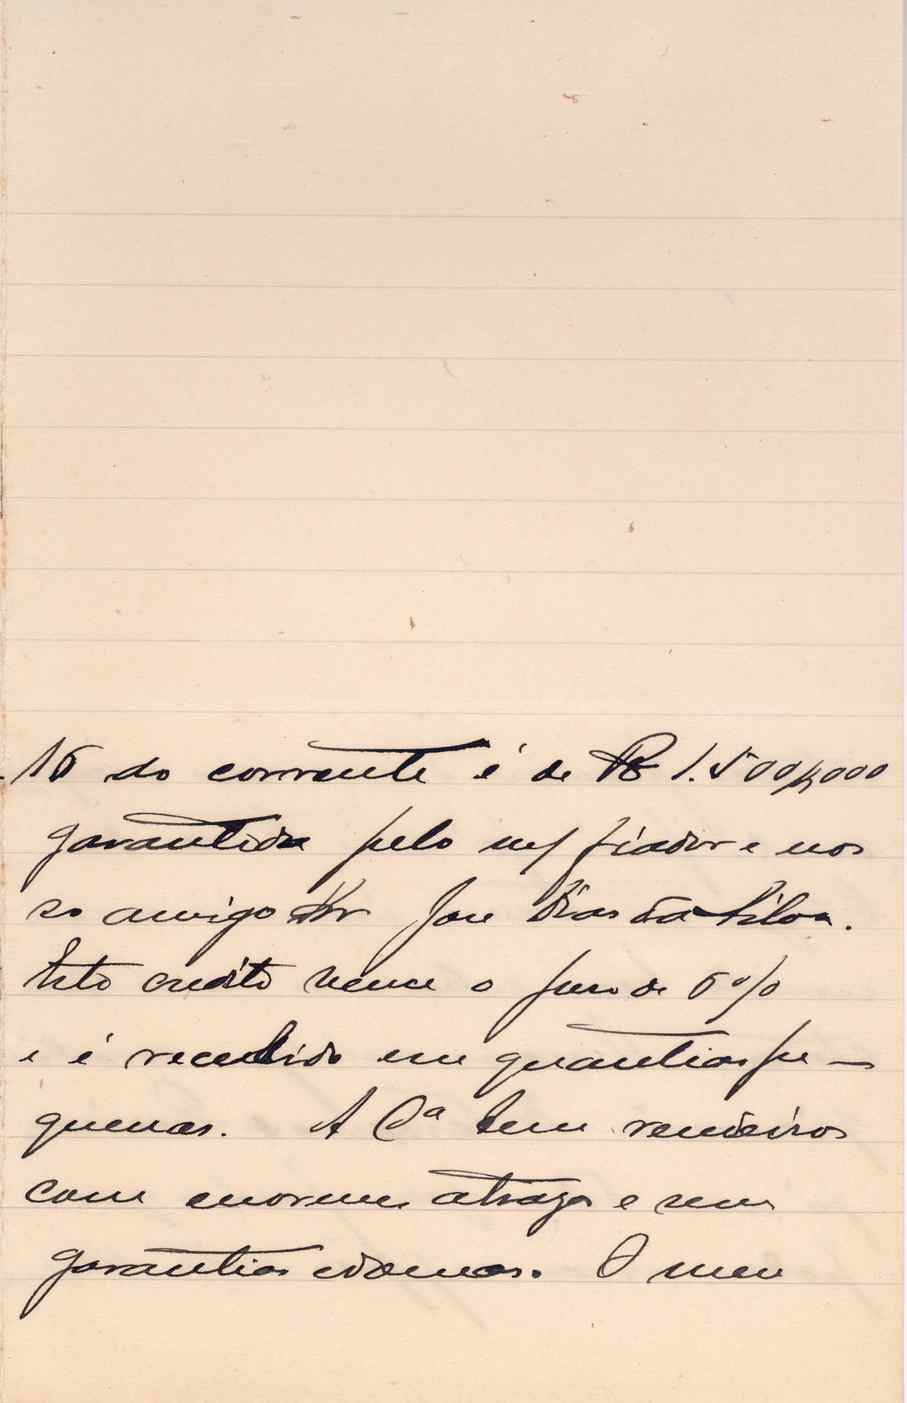 16 do corrente é de R$ 1.500$000
garantida pelo m/ fiador e nos
so amigo Dr José Dias da Silva.
Este credito vence o juro de 6%
e é recebido em quantias pe-
quenas. A Cª tem remeiros
com enorme atrazo e sem
garantias idoneas. O meu